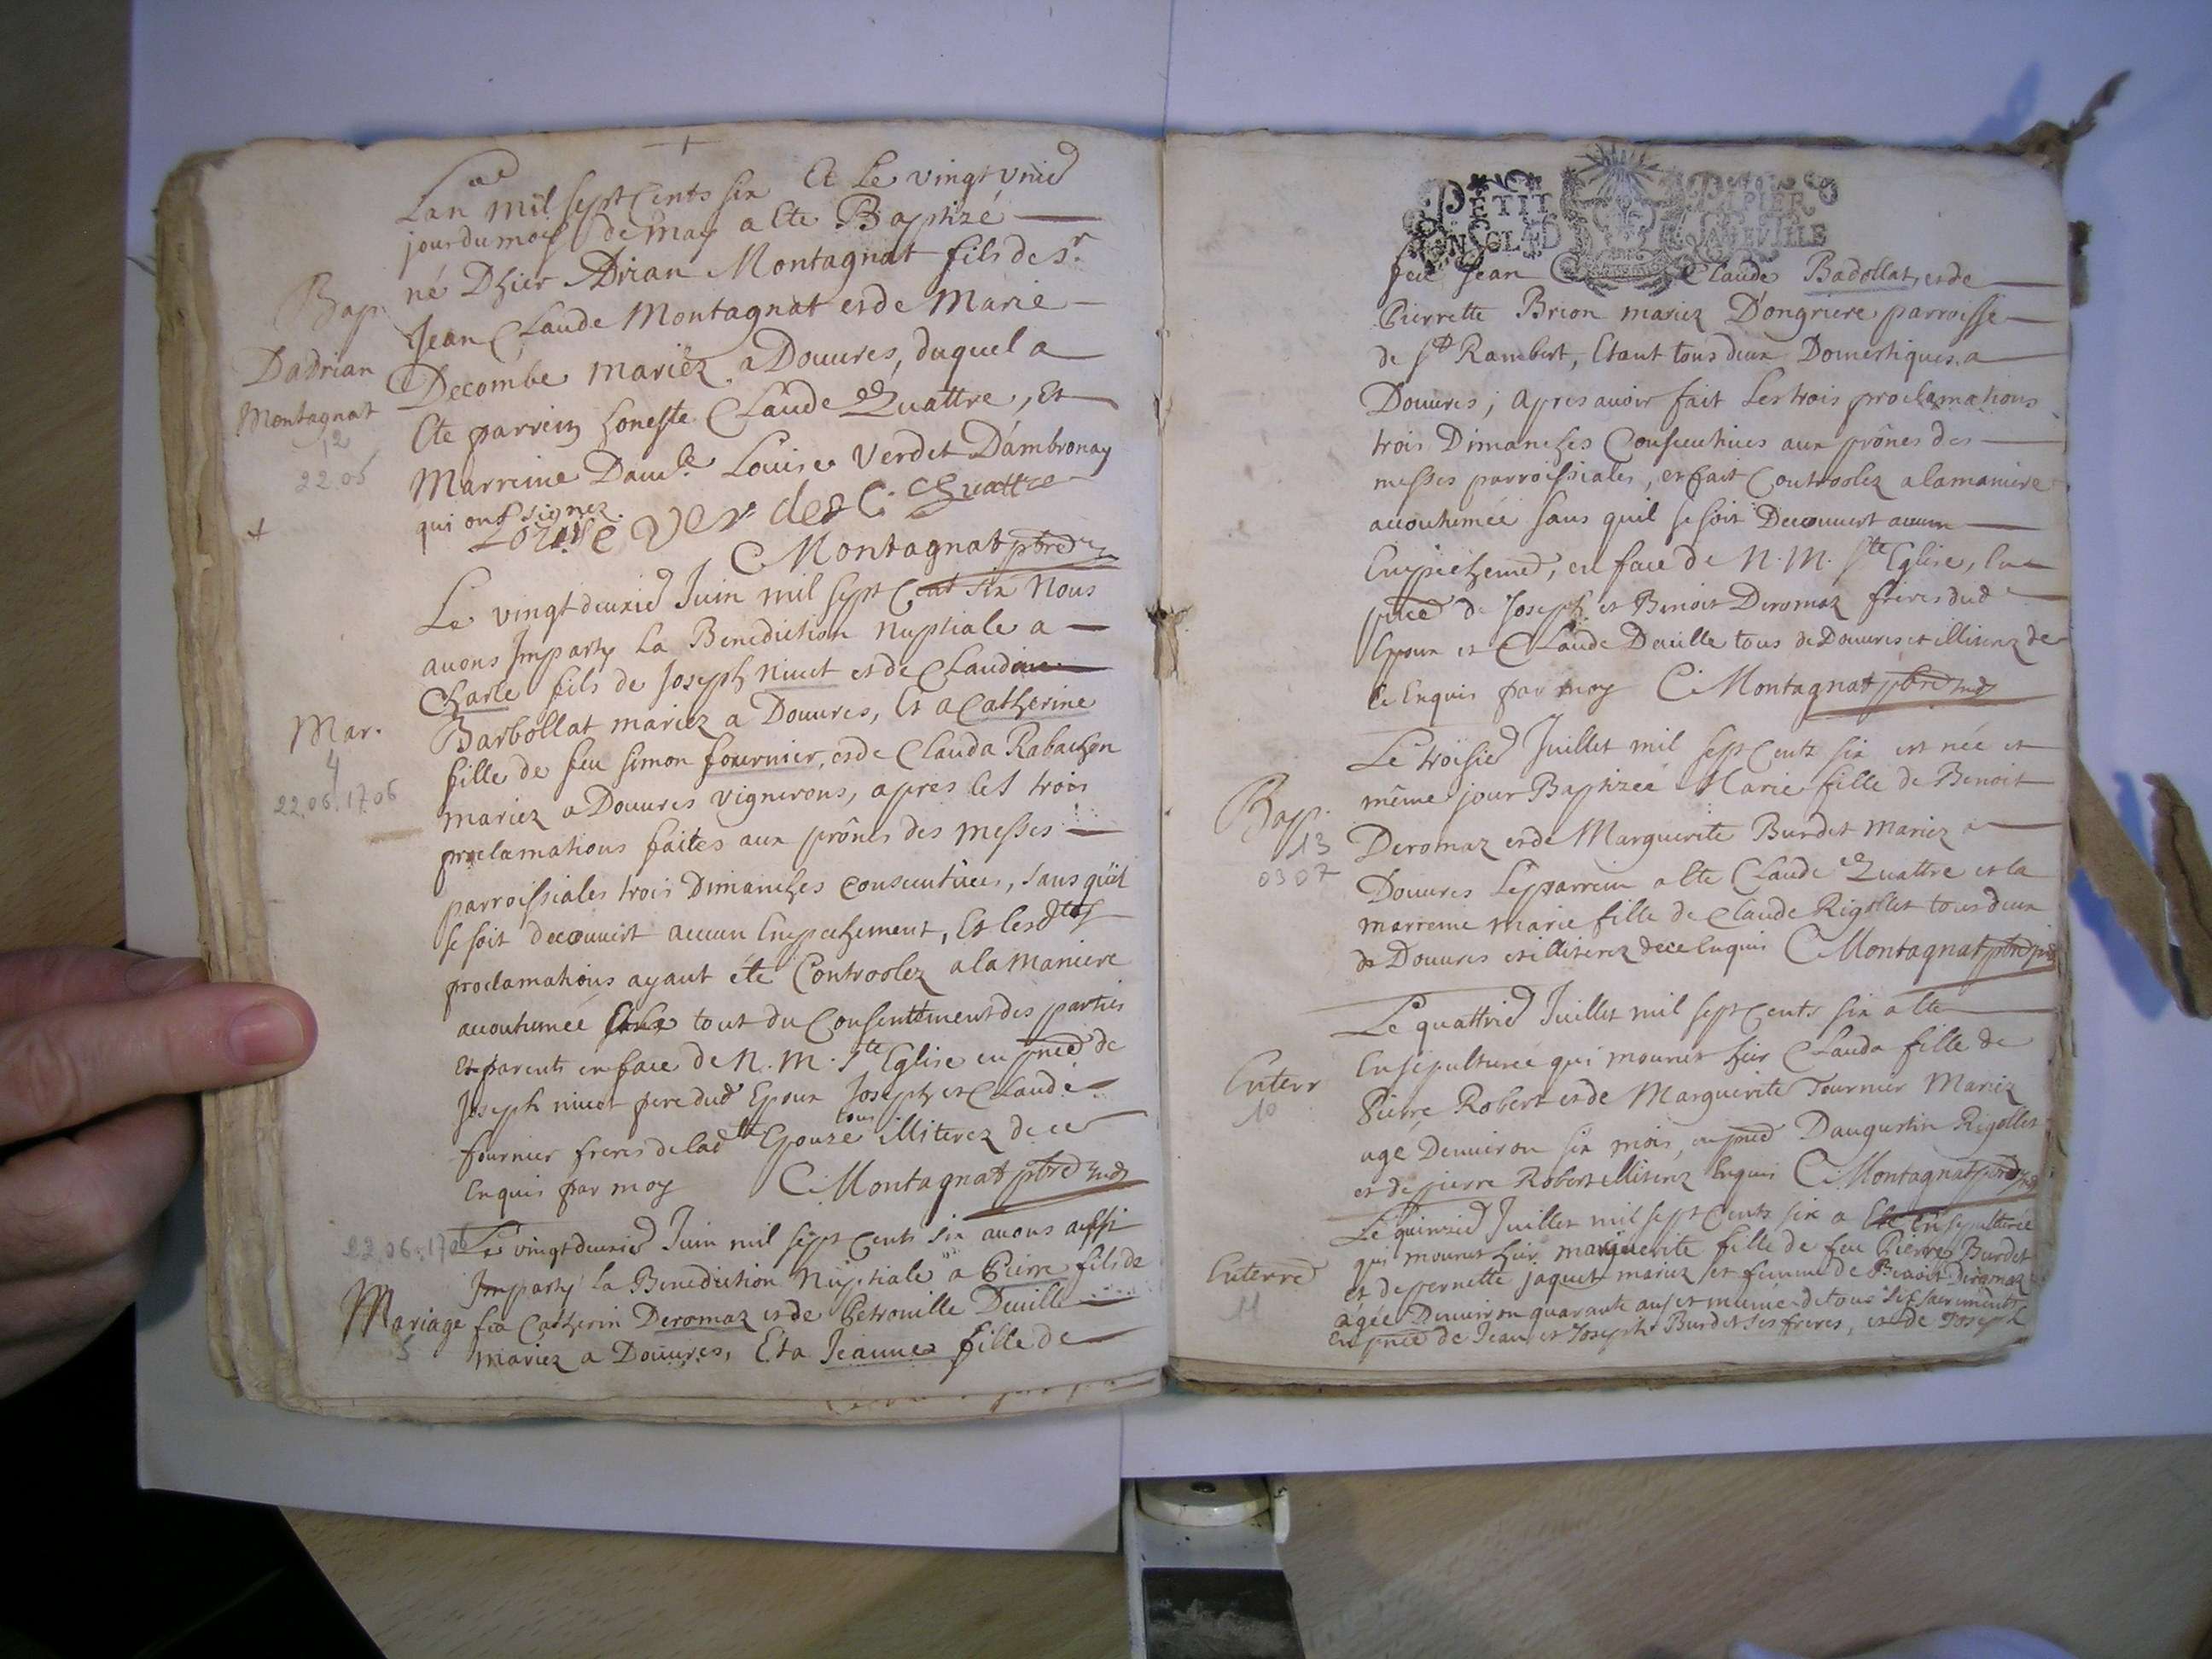 Lan mil sept Cents six Et Le vingt unie
jour du mois de may a Ete Baptizé
né Dhier Adrian Montagnat fils de Sr
Jean Claude Montagnat et de Marie
Decombe mariéz a Douures, duquel a
Ete parrein honeste Claude Quattre, Et
Marreine Damle Louise Verdet D'ambronay
qui ont signez.
Louise Verdet C. Quattre
C Montagnat ptre
Bap.
Dadrian
Montagnat
12
22.05
Le vingtdeuxie Juin mil sept Cent six Nous
auons Imparty La Benediction Nuptiale a
Charle fils de Joseph Niuet et de Claudine
Barbollat mariez a Douures, Et a Catherine
fille de feu Simon fournier, et de Clauda Rabachon
mariez a Douures vignerons, apres les trois
proclamations faites aux prônes des messes
parroissiales trois Dimanches consecutiues, sans quil
se soit decouuert aucun Empechement, Et lesdtes
proclamations ayant été Controolez a la maniere
accoutumée tout du Consentement des parties
Et parents en face de N. M. Ste Eglise en pnce de
Joseph niuet pere dud Epoux Joseph et Claude
fournier freres de lad Epouze tous illiterez de ce
Enquis par moy C Montagnat ptre
Mar.
4
22.06.1706
22.06.1706
Le vingtdeuxie Juin mil sept Cents six auons aussi
Imparty la Benediction Nuptiale a Pierre fils de
feu Catherin Deromaz et de Petronille Deuille
mariez a Douures, Et a Jeanne fille de
Mariage
5
PETIT PAPIER
feu Jean Claude Badollat, et de
Pierrette Brion mariez D'ongriere parroisse
de St Rambert, Etant tous deux Domestiques a
Douures; apres auoir fait Les trois proclamations
trois Dimanches Consecutiues aux prônes des
messes parroissiales, et fait Controolez a la maniere
accoutumée sans quil se soit Decouuert aucun
Empechemt, en face de N. M. Ste Eglise, En
pnce de Joseph et Benoit Deromaz freres dud
Epoux et Claude Deuille tous de Douures et illiterez de
ce Enquis par moy C Montagnat ptre
Le troisie Juillet mil sept Cents six est née et
même jour Baptizée Marie fille de Benoit
Deromaz et de Marguerite Burdet mariez a
Douures Le parrein a Ete Claude Quattre et la
marreine marie fille de Claude Rigollet tous deux
de Douures et illiterez de ce Enquis C Montagnat ptre
Bap.
13
03 07
Le quattrie Juillet mil sept Cents six a Ete
Ensepulturée qui mourut hier Clauda fille de
Pierre Robert et de Marguerite Tournier Mariez
age Denuiron six mois, en pnce Daugustin Rigollet
et de pierre Robert illiterez Enquis C Montagnat ptre
Enterr
10
Le quinzie Juillet mil sept Cents six a Ete Ensepulturée
qui mourut hier marguerite fille de feu Pierre Burdet
et de pernette jaquet mariez et femme de Benoit Deromaz
agée Denuiron quarante ans et munie de tous ses sacrements
En pnce de Jean et Joseph Burdet ses freres, et de Joseph
Enterre
11